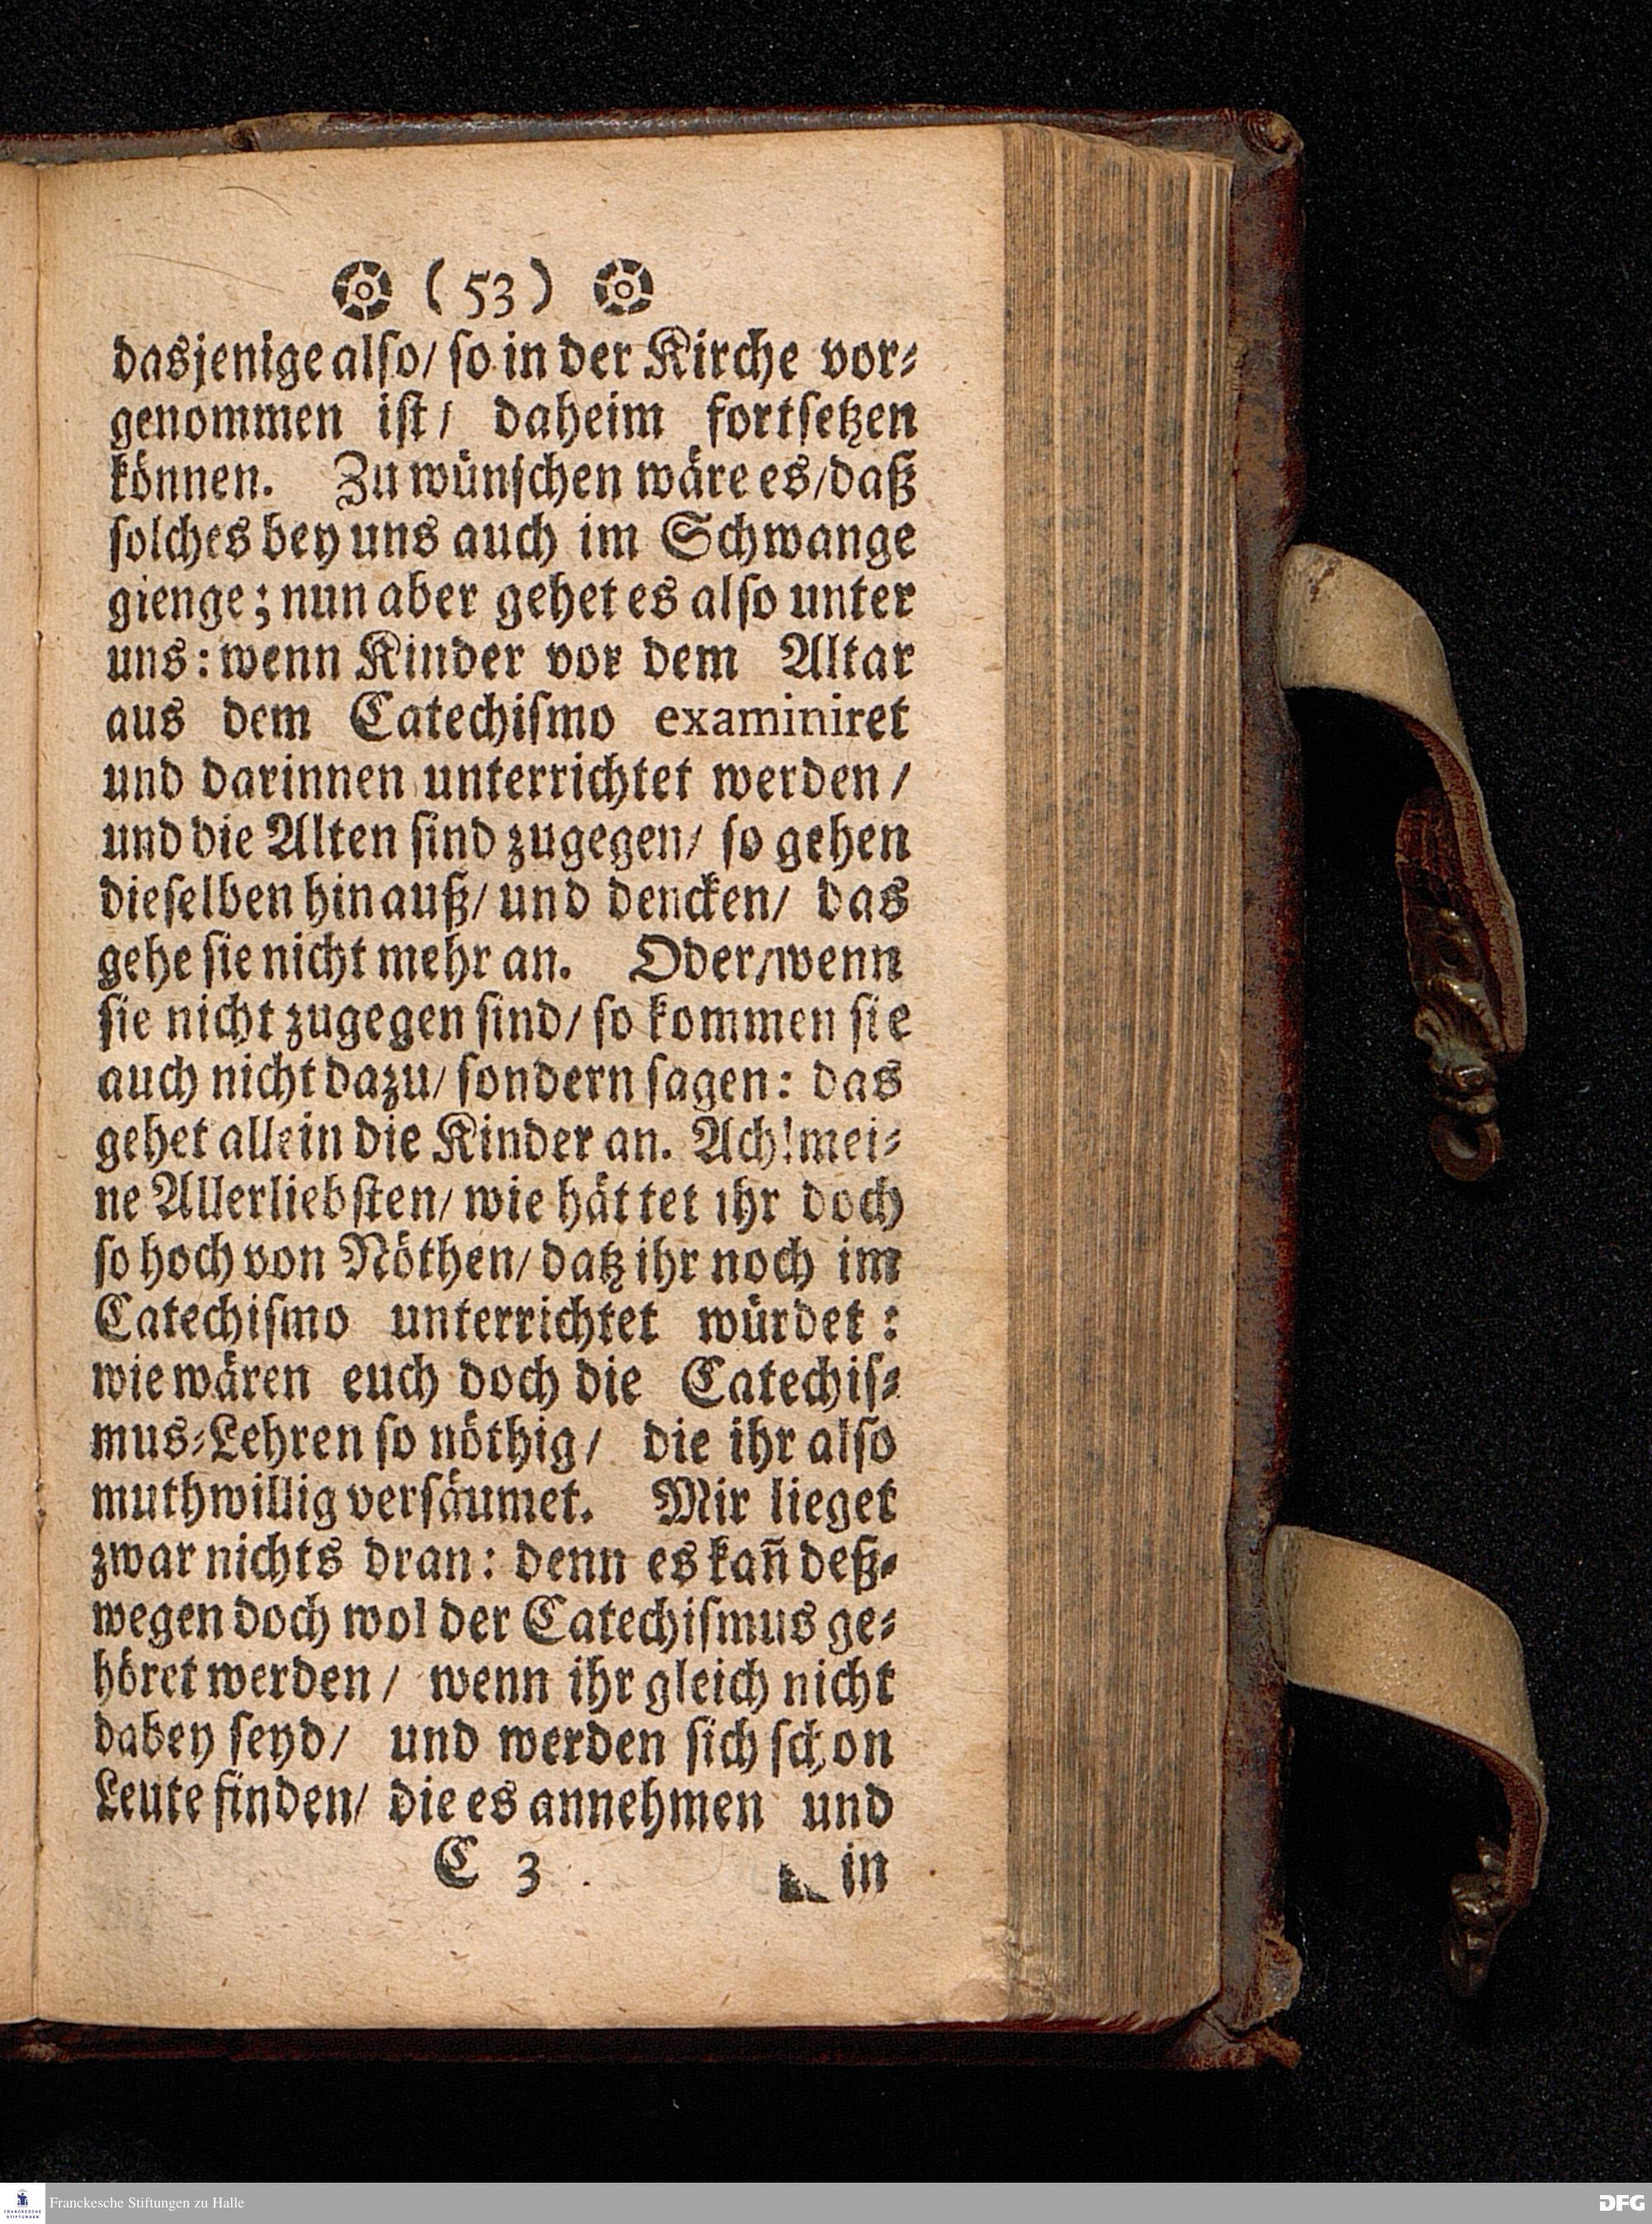 ( 53 )
dasjenige also/ so in der Kirche vor-
genommen ist/ daheim fortsetzen
können. Zu wünschen wäre es/daß
solches bey uns auch im Schwange
gienge; nun aber gehet es also unter
uns: wenn Kinder vor dem Altar
aus dem Catechismo examiniret
und darinnen unterrichtet werden/
und die Alten sind zugegen/ so gehen
dieselben hinauß/ und dencken/ das
gehe sie nicht mehr an. Oder/wenn
sie nicht zugegen sind/ so kommen sie
auch nicht dazu/ sondern sagen: das
gehet allein die Kinder an. Ach! mei-
ne Allerliebsten/ wie hättet ihr doch
so hoch von Nöthen/ datz ihr noch im
Catechismo unterrichtet würdet:
wie wären euch doch die Catechis-
mus-Lehren so nöthig/ die ihr also
muthwillig versäumet. Mir lieget
zwar nichts dran: denn es kañ deß-
wegen doch wol der Catechismus ge-
höret werden/ wenn ihr gleich nicht
dabey seyd/ und werden sich schon
Leute finden/ die es annehmen und
C 3 in
Franckesche Stiftungen zu Halle
FRANCKESCHE STIFTUNGEN
DFG